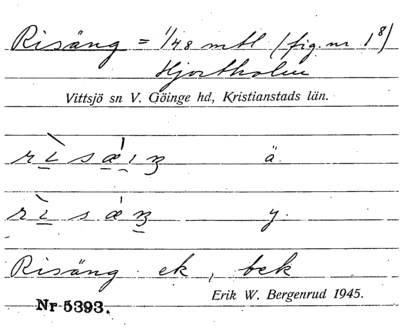 Risäng = 1/48 mtl (fig. nr 1⁸)
Hjortholm
Vittsjö sn V. Göinge hd, Kristianstads län.
ä.
y.
Risäng ek, bek
Erik W. Bergenrud 1945.
Nr 5393.